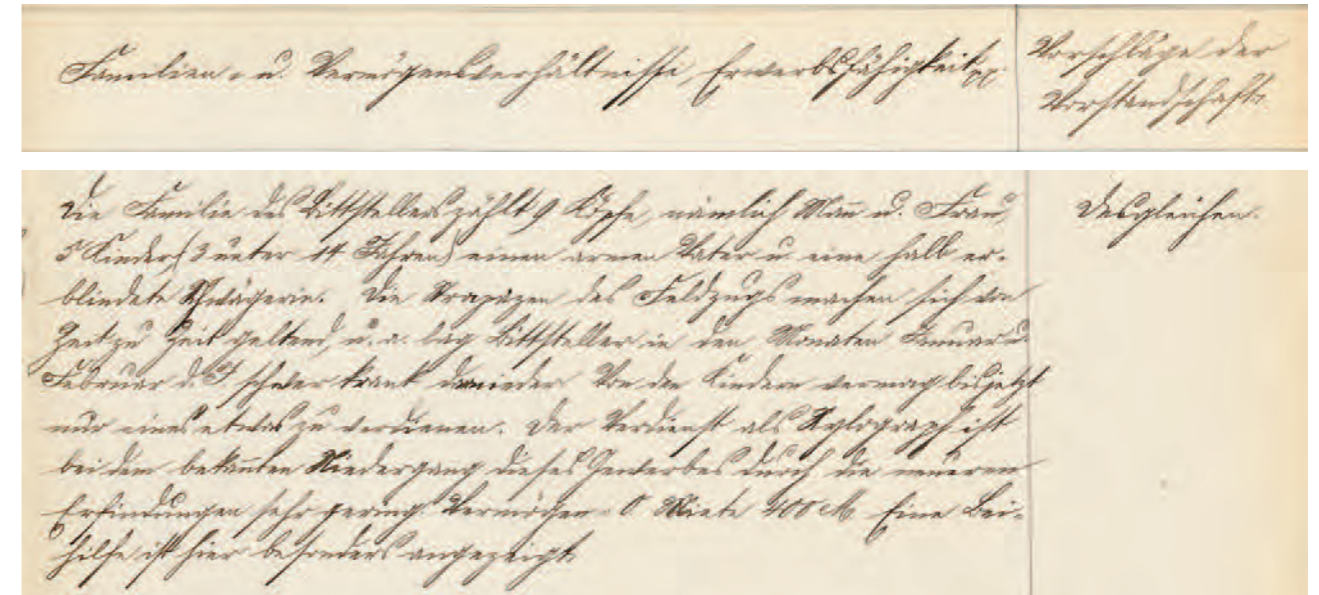 Familien- u. Vermögensverhältnisse, Erwerbsfähigkeit pp.
Vorschläge der
Vorstandschaft.
Die Familie des Bittstellers zählt 9 Köpfe, nämlich Mann u. Frau,
5 Kinder (3 unter 14 Jahren) einen armen Vater u. eine halb er-
blindete Schwägerin. Die Strapazen des Feldzugs machen sich von
Zeit zu Zeit geltend, u. a. lag Bittsteller in den Monaten Januar u.
Februar d. J. schwer krank danieder. Von den Kindern vermag bis jetzt
nur eines etwas zu verdienen. Der Verdienst als Xylograph ist
bei dem bekannten Niedergang dieses Gewerbes durch die neueren
Erfindungen sehr gering. Vermögen = 0. Miete 400 M. Eine Bei-
hilfe ist hier besonders angezeigt.
Desgleichen.